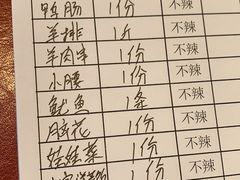 鸭肠 1份 不辣
羊排 1斤 不辣
羊肉串 1份 不辣
小腰 1份 不辣
鱿鱼 1条 不辣
1份 不辣
娃娃菜 1份 不辣
1份 不辣